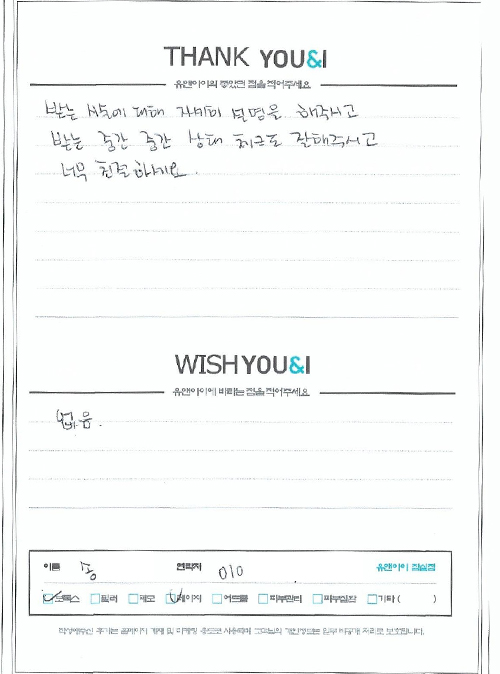 THANK YOU&I
유앤아이의 좋았던 점을 적어주세요
받는 시술에 대해 자세히 설명을 해주시고
받는 중간 중간 상태 체크도 잘해주시고
너무 친절하세요.
WISH YOU&I
유앤아이에 바라는 점을 적어주세요
없음.
이름 송 연락처 010 유앤아이 잠실점
보톡스 필러 제모 레이저 여드름 피부관리 피부질환 기타 ( )
작성해주신 후기는 홈페이지 게재 및 마케팅 용도로 사용되며 고객님의 개인정보는 일부 비공개 처리로 보호됩니다.